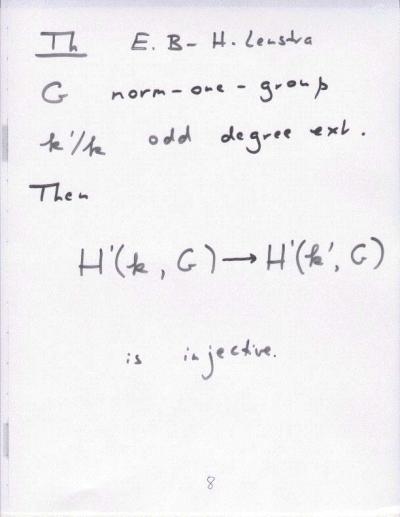 Th E. B- H. Lenstra
G norm-one-group
k'/k odd degree ext.
Then
H'(k, G) → H'(k', G)
is injective.
8